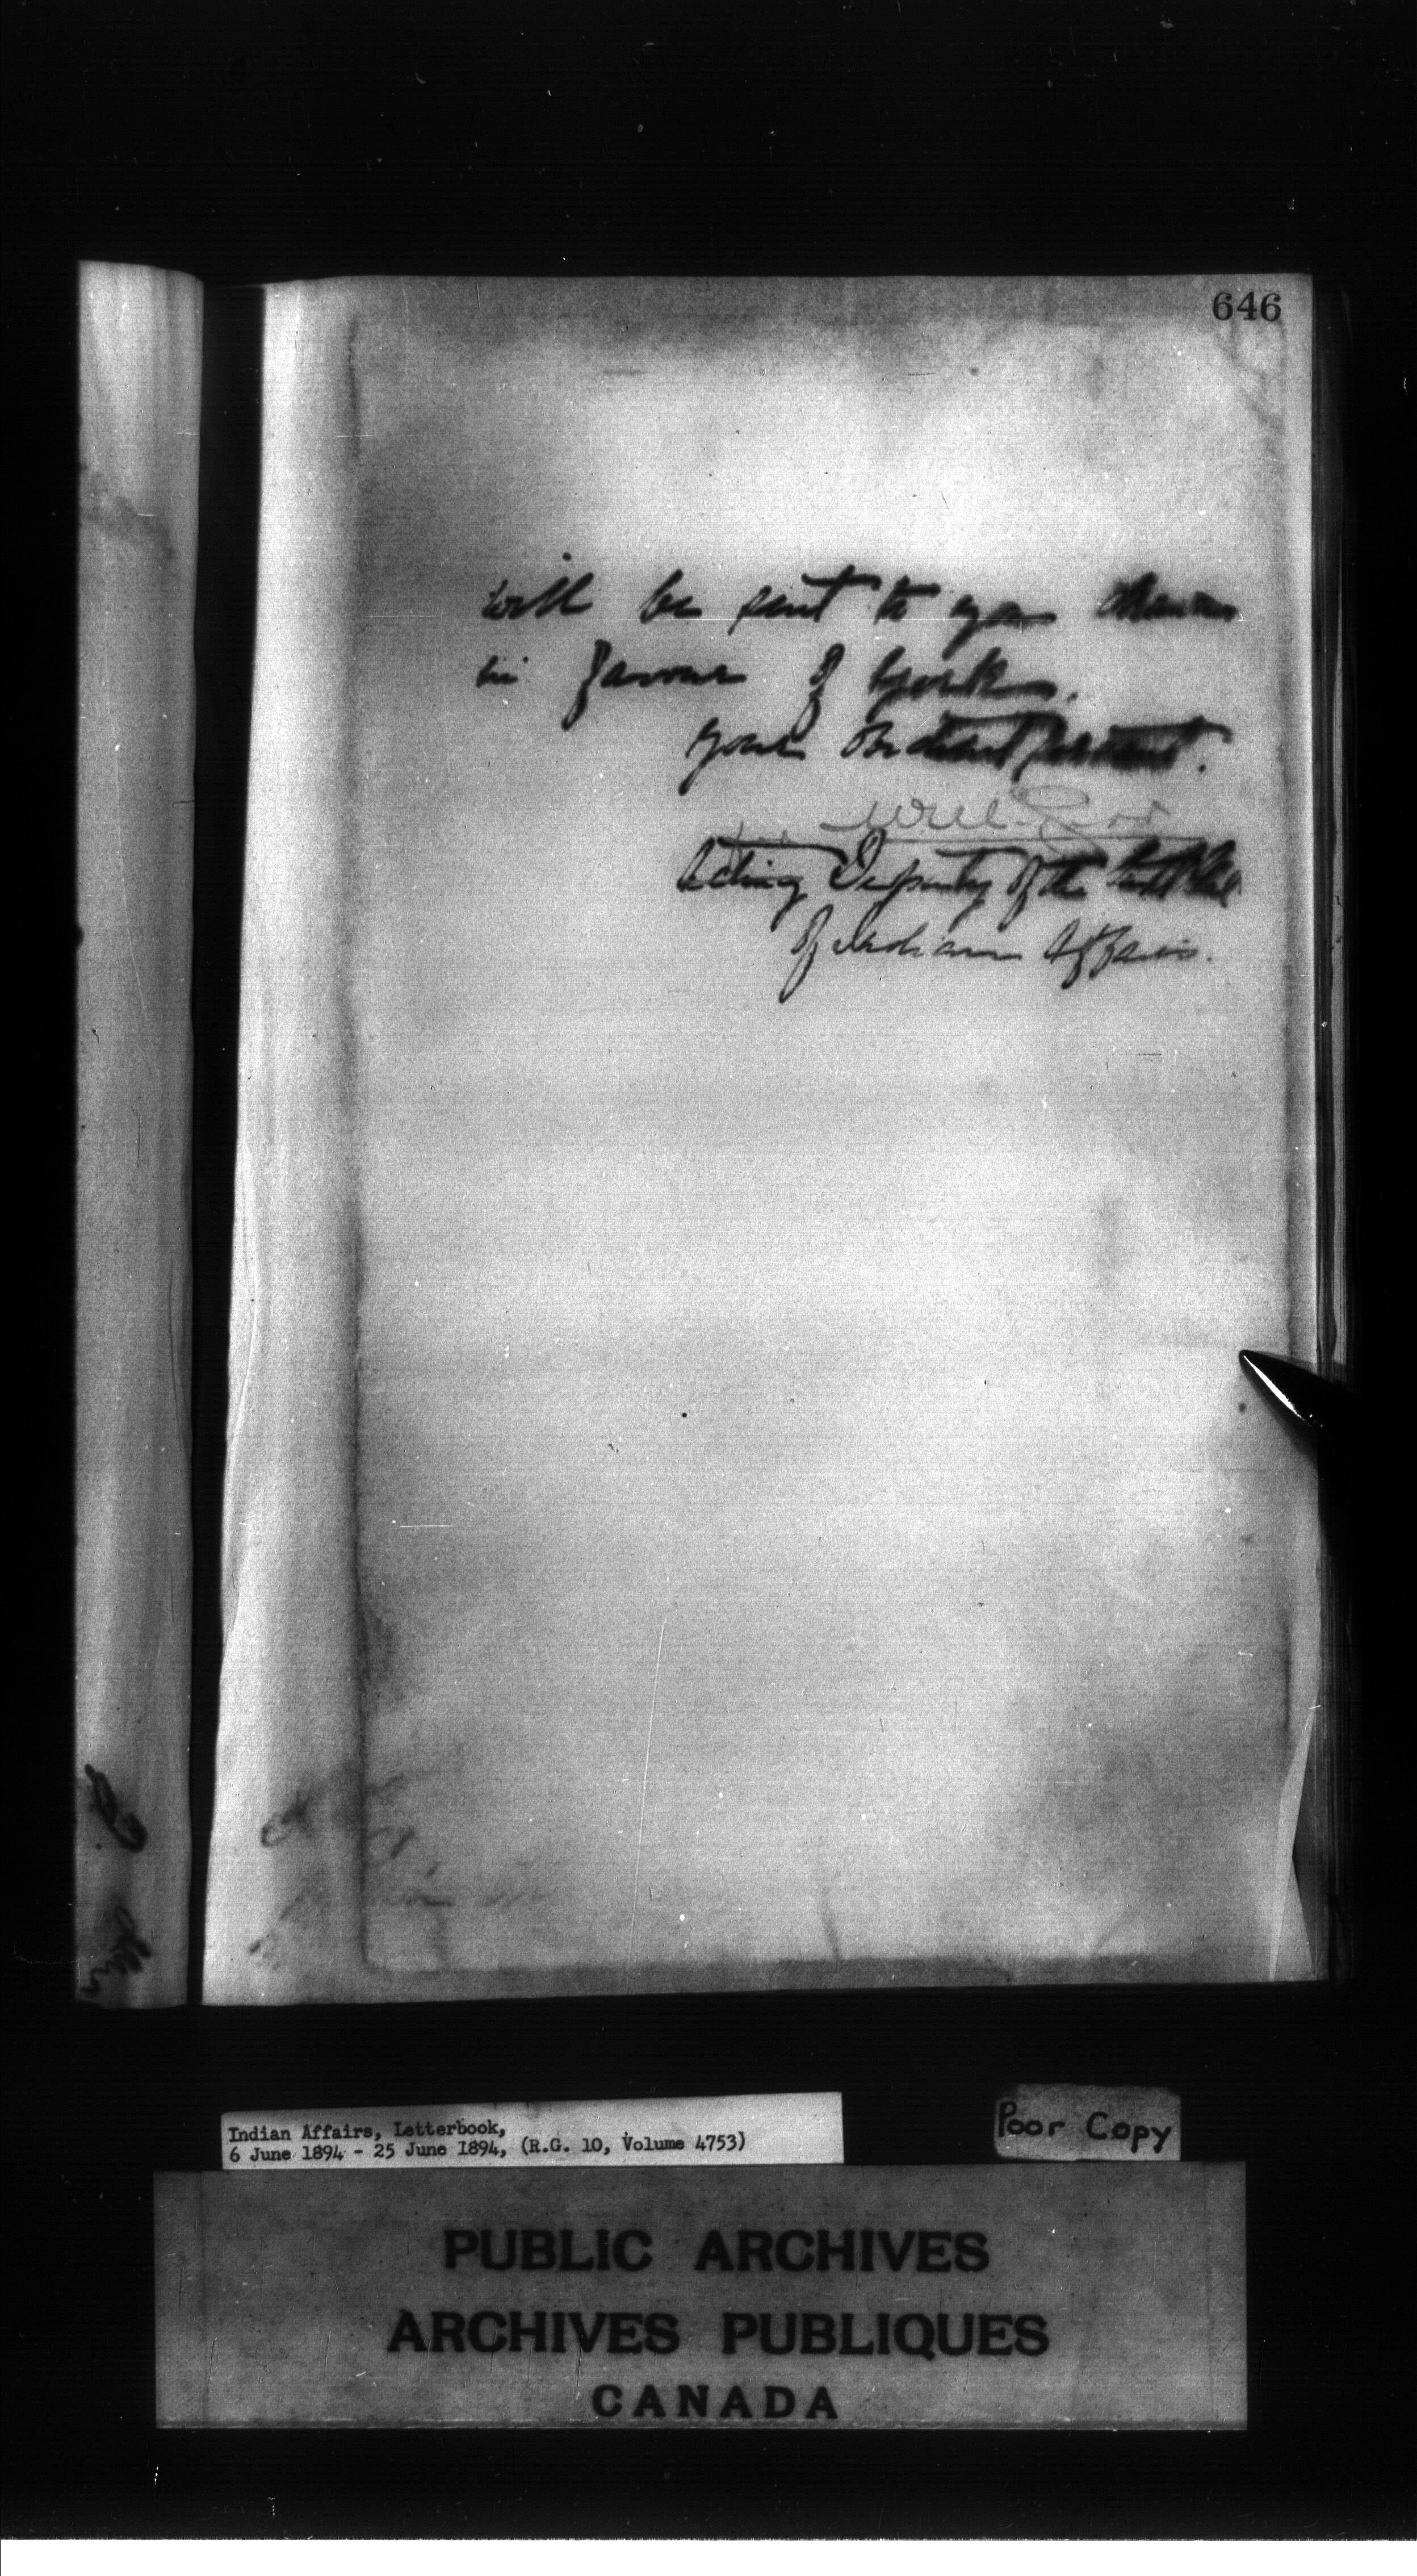 646
will be sent to you drawn
in favour of York.
Your Obedient Servant.
for
Acting Deputy of the Supt Genl
of Indian Affairs.
Indian Affairs, Letterbook,
6 June 1894 - 25 June 1894, (R.G. 10, Volume 4753)
Poor Copy
PUBLIC ARCHIVES
ARCHIVES PUBLIQUES
CANADA